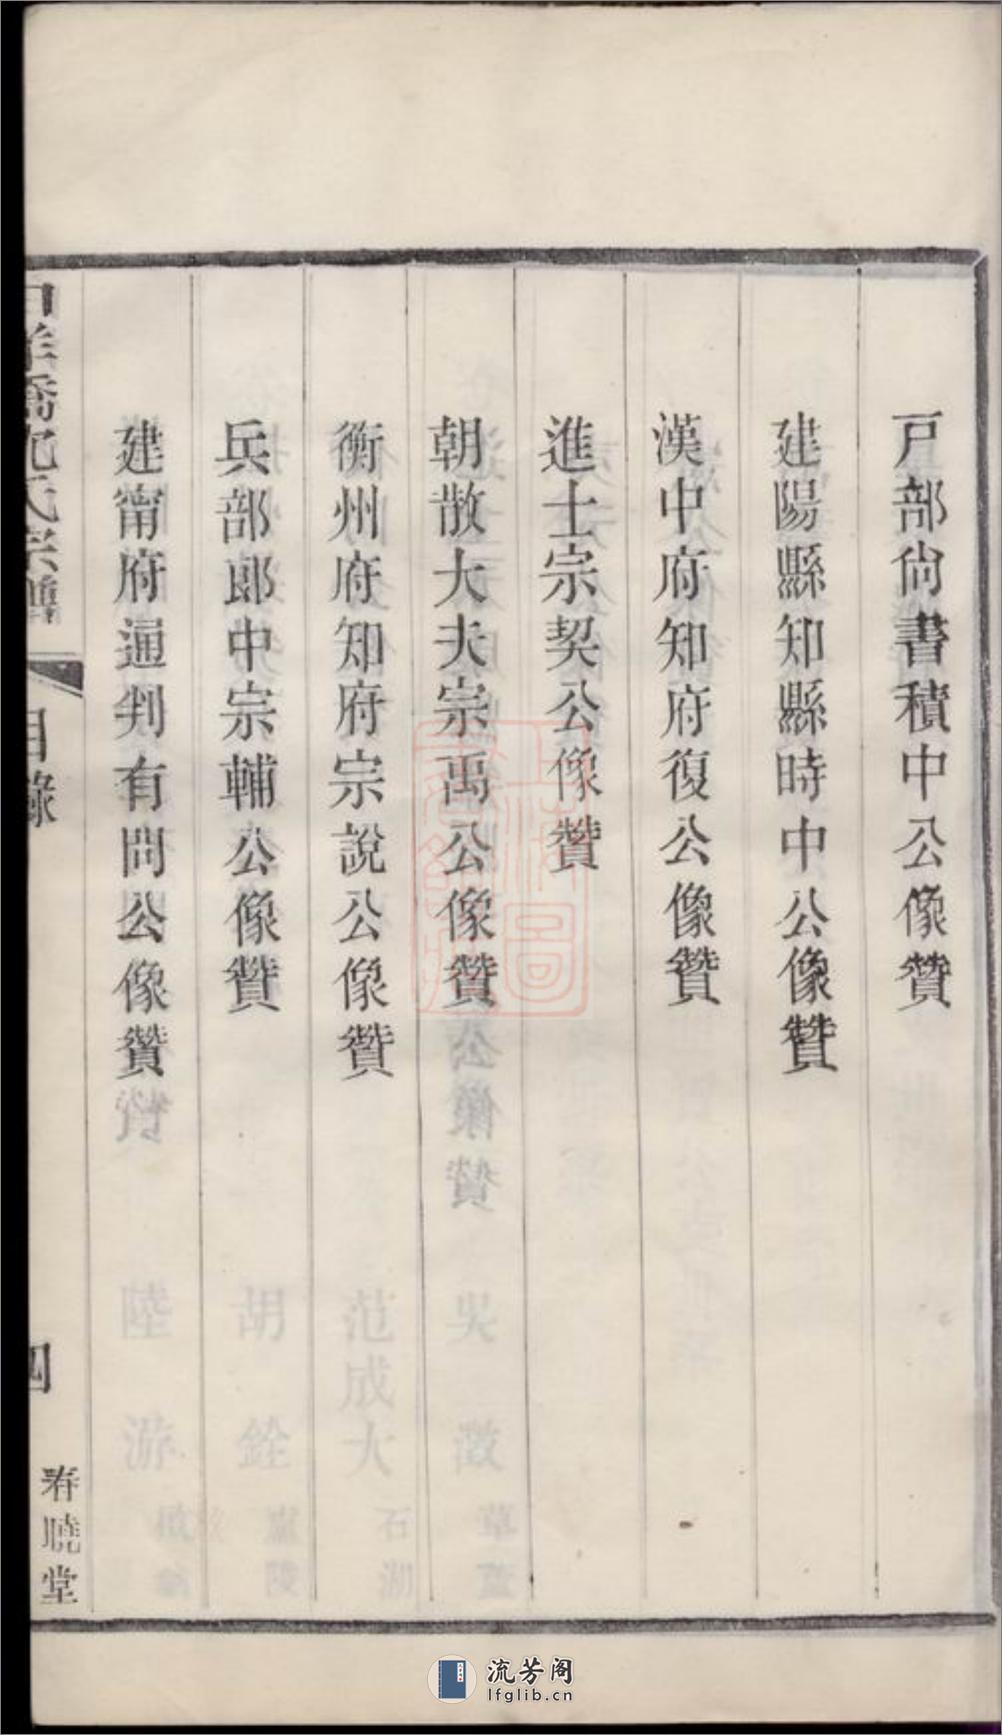 戸部尙書積中公像贊
建陽縣知縣時中公像贊
漢中府知府復公像贊
進士宗契公像贊
朝散大夫宗禹公像贊
衡州府知府宗說公像贊
兵部郞中宗輔公像贊
建甯府通判有問公像贊
羊橋沈氏宗譜
目錄
四
春曉堂
流芳阁
lfglib.cn